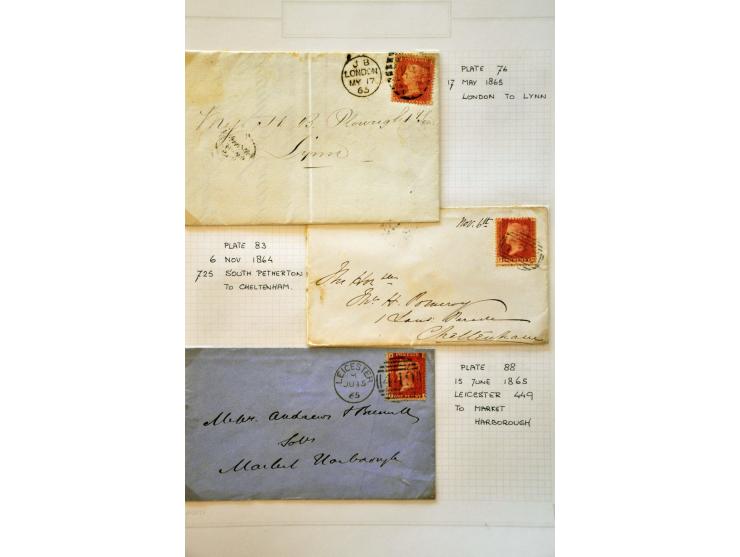 J B
LONDON
MY 17
65
PLATE 76
17 MAY 1865
LONDON TO LYNN
Lynn
PLATE 83
6 NOV 1864
725 SOUTH PETHERTON
TO CHELTENHAM.
Nov. 6th
The Honble
H. Pomeroy
1 Parade
Cheltenham
LEICESTER
JU 15
65
449
PLATE 88
15 JUNE 1865
LEICESTER 449
TO MARKET
HARBOROUGH
Messrs Andrews &
Solrs
Market Harborough